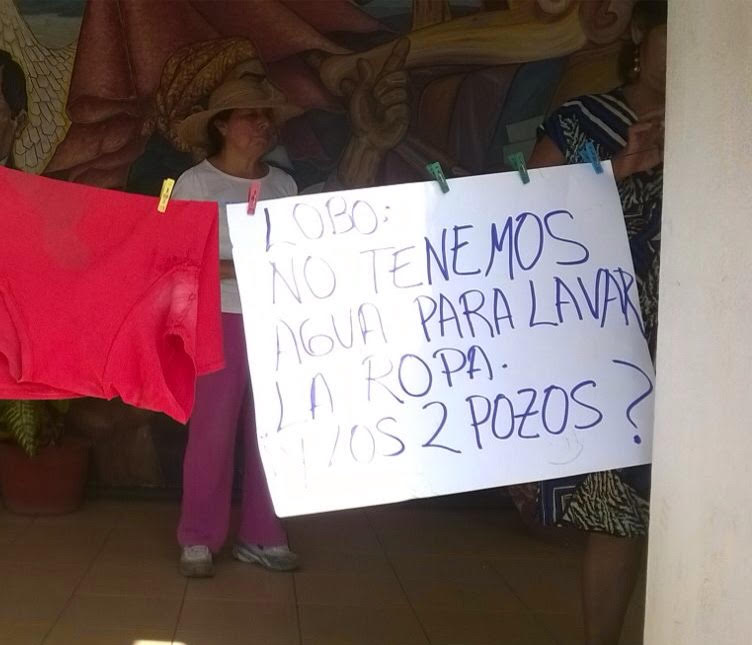 LOBO:
NO TENEMOS
AGUA PARA LAVAR
LA ROPA.
¿Y LOS 2 POZOS?